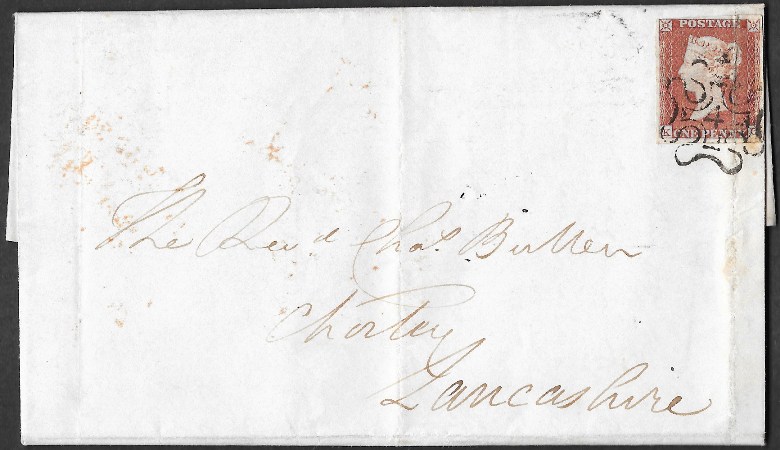 POSTAGE
4
ONE PENNY
K
The Revd Chas. Bullen
Chorley
Lancashire